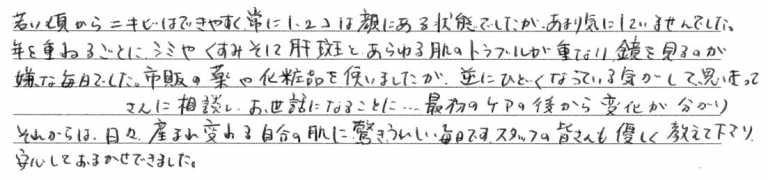 若い頃からニキビはできやすく常に1.2コは顔にある状態でしたが、あまり気にしていませんでした。
年を重ねるごとに、シミやくすみそして肝斑とあらゆる肌のトラブルが重なり、鏡を見るのが
嫌な毎日でした。市販の薬や化粧品を使いましたが、逆にひどくなっている気がして、思いきって
さんに相談し、お世話になることに…最初のケアの後から変化が分かり
それからは、日々、産まれ変わる自分の肌に驚きうれしい毎日です。スタッフの皆さんも優しく教えて下さり、
安心しておまかせできました。